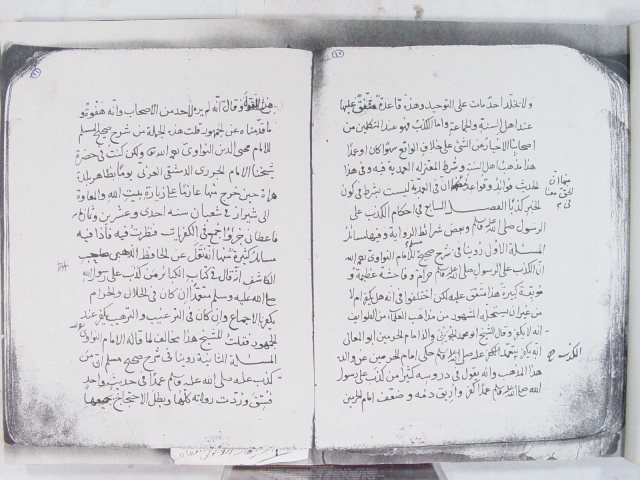 ولا يخلد احد مات على التوحيد وهذه قاعدة متفق عليها
عند اهل السنة والجماعة واما الكذب فهو عند المتكلمين من
اصحابنا الاخبار عن الشئ على خلاف الواقع سهوا كان او عمدا
هذا مذهب اهل السنة وشرط المعتزلة العمدية فيه وفي هذا
الحديث فوائد وقواعد منها ان العمدية ليست بشرط في كون
الخبر كذبا الفصل السابع في احكام الكذب على
الرسول صلى الله عليه وسلم وبعض شرائط الرواية وفيه مسائل
المسئلة الاولى روينا في شرح صحيح مسلم للامام النواوي رحمه الله
ان الكذب على الرسول صلى الله عليه وسلم حرام وفاحشة عظيمة و
موبقة كبيرة هذا متفق عليه لكن اختلفوا في انه هل يكفر ام لا
من غير ان يستحله المشهور من مذاهب العلماء من الطوايف
انه لا يكفر وقال الشيخ ابو محمد الجويني والد امام الحرمين ابو المعالي
انه يكفر بتعمد الكذب عليه صلى الله عليه وسلم حكى امام الحرمين عن والده
هذا المذهب وانه يقول في دروسه كثيرا من كذب على رسول
الله صلى الله عليه وسلم عمدا كفر واريق دمه وضعف امام الحرمين
الكذب صح
هذا القول وقال انه لم يره لاحد من الاصحاب وانه هفوة و
ما قدمنا عن الجمهور قلت هذه الجملة من شرح صحيح المسلم
للامام محيي الدين النواوي رحمه الله وكنت في حضرة
شيخنا الامام الجزري الدمشقي يوما بظاهر بلدة
هراة حين خرج منها عازما على زيارة بيت الله والمعاودة
الى شيراز في شعبان سنه احدى وعشرين وثمانمائة
فاعطاني جزوا جمع في الكبائر فنظرت فيه فاذا فيه
مسائل كثيرة منها انه نقل عن الحافظ الذهبي صاحب
الكاشف انه قال في كتاب الكبائر من كذب على رسول الله
صلى الله عليه وسلم متعمدا ان كان في الحلال والحرام
يكفر بالاجماع وان كان في الترغيب والترهيب يكفر عند
الجمهور فقلت للشيخ هذا مخالف لما قاله الامام النواوي
المسئلة الثانية روينا في شرح صحيح مسلم ان من
كذب عليه صلى الله عليه وسلم عمدا في حديث واحد
فسق وردت رواياته كلها وبطل الاحتجاج بجميعها